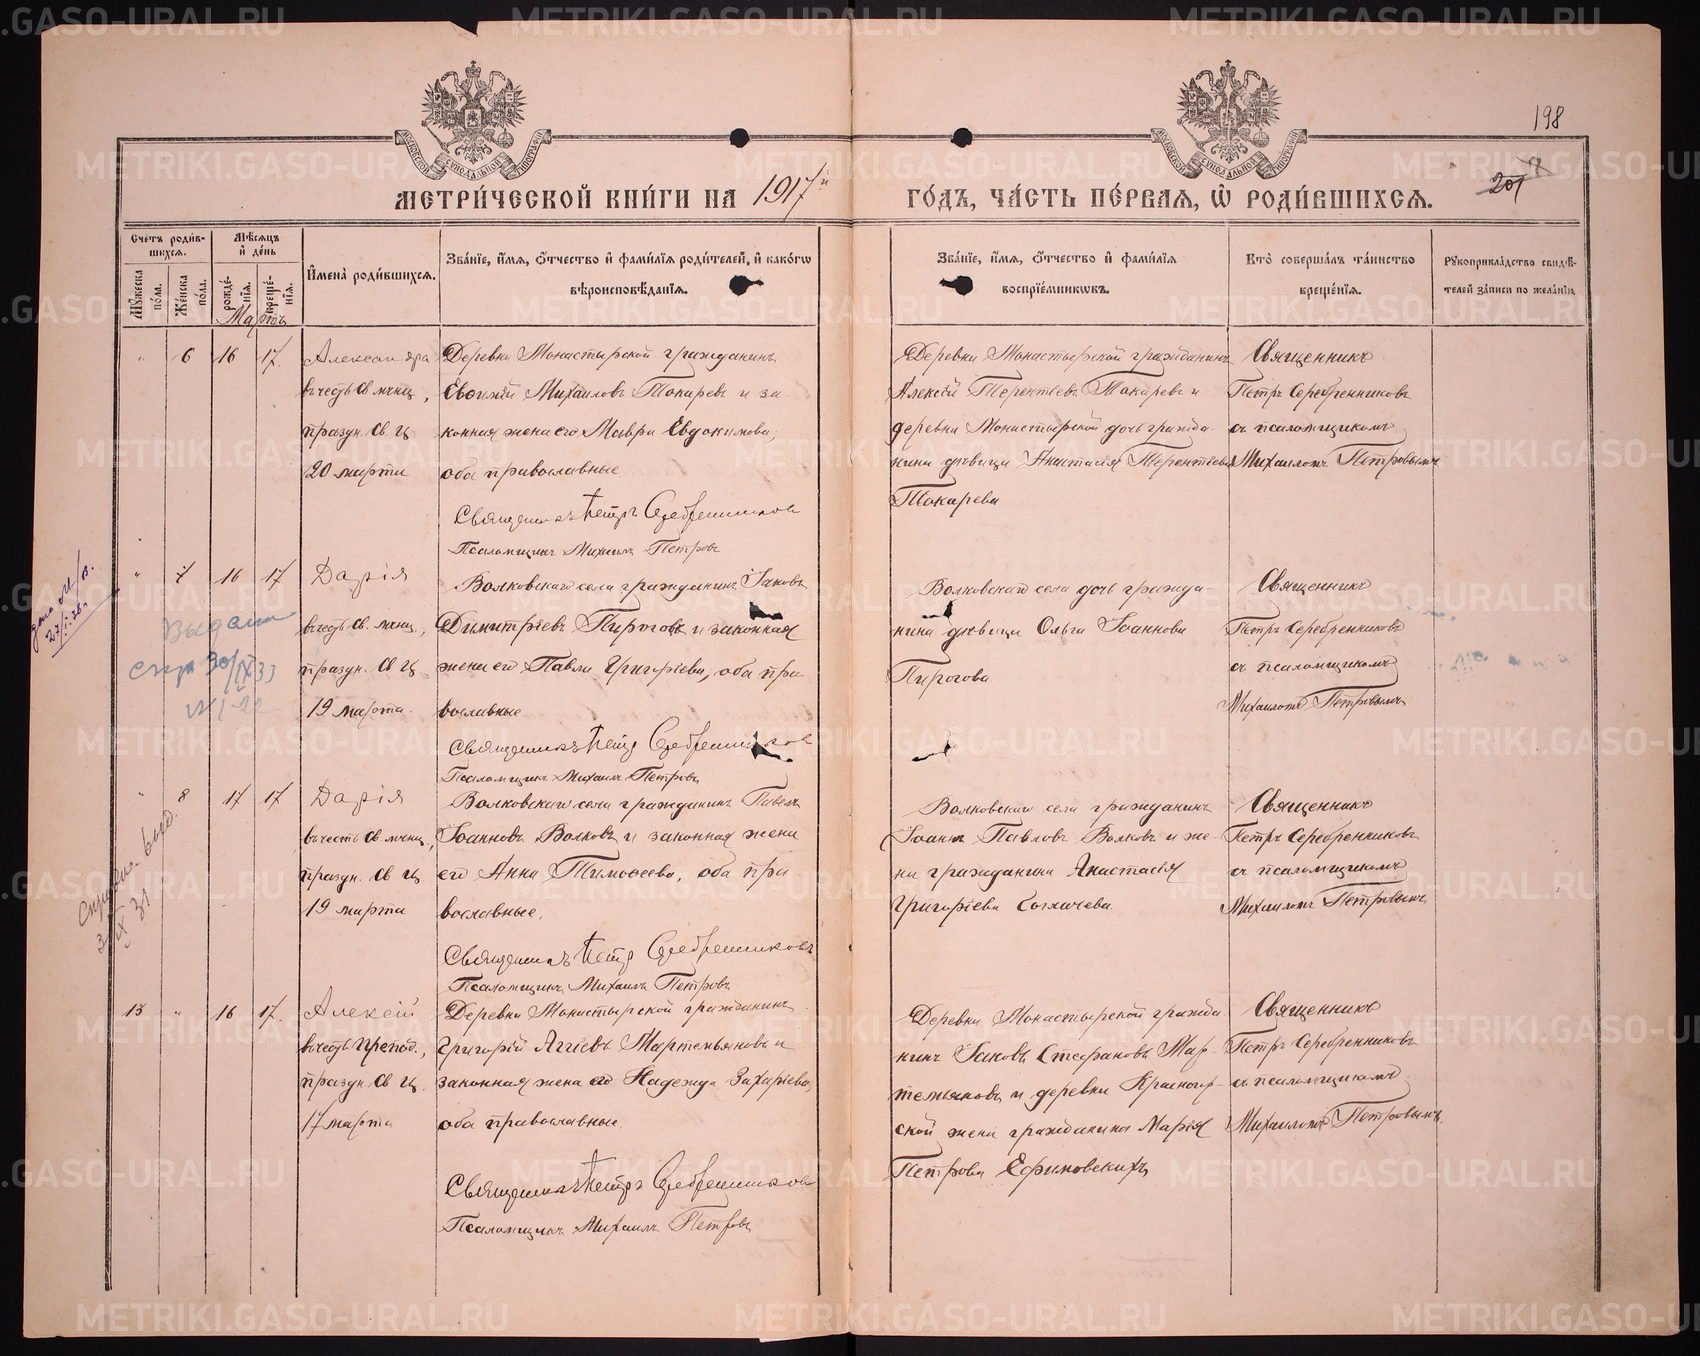 198
201
МЕТРИ́ЧЕСКОЙ КНИ́ГИ НА 1917й ГО́ДЪ, ЧА́СТЬ ПЕ́РВАЯ, Ѡ҆ РОДИ́ВШИХСЯ.
Сче́тъ роди́в-
шихся.
Мꙋ́жеска по́ла.
Же́нска по́ла.
Мѣ́сяцъ и҆ де́нь
рожде́-
нїя.
креще́-
нїя.
И҆мена̀ роди́вшихся.
Зва́нїе, и҆́мя, ѻ҆́тчество и҆ фами́лїя роди́телей, и҆ како́гѡ
вѣроисповѣ́данїя.
Зва́нїе, и҆́мя, ѻ҆́тчество и҆ фами́лїя
воспрїе́мникѡвъ.
Кто̀ соверша́лъ та́инство
креще́нїя.
Рꙋкоприкла́дство свидѣ́-
телей за́писи по жела́нїю.
Мартъ
" 6 16 17.
Александра
въ честь св. мчниц.,
праздн. св. ц.
20 марта
Деревни Монастырской гражданинъ
Евѳимій Михаиловъ Токаревъ и за-
конная жена его Мавра Евдокимова,
оба православные.
Священникъ Петръ Серебренниковъ
Псаломщикъ Михаилъ Петровъ
Деревни Монастырской гражданинъ
Алексѣй Терентьевъ Токаревъ и
деревни Монастырской дочь гражда-
нина дѣвица Анастасія Терентьева
Токарева
Священникъ
Петръ Серебренниковъ
съ псаломщикомъ
Михаиломъ Петровымъ
" 7 16 17
Дарія
въ честь св. мчниц.,
праздн. св. ц.
19 марта.
Волковскаго села гражданинъ Іаковъ
Димитріевъ Пироговъ и законная
жена его Павла Григоріева, оба пра-
вославные.
Священникъ Петръ Серебренниковъ
Псаломщикъ Михаилъ Петровъ
Волковскаго села дочь гражда-
нина дѣвица Ольга Іоаннова
Пирогова
Священникъ
Петръ Серебренниковъ
съ псаломщикомъ
Михаиломъ Петровымъ
27/I-26.
Выдана
спр 30/IX 33
" 8 17 17
Дарія
въ честь св. мчниц.,
праздн. св. ц.
19 марта
Волковскаго села гражданинъ Павелъ
Іоанновъ Волковъ и законная жена
его Анна Тимоѳеева, оба пра-
вославные.
Священникъ Петръ Серебренниковъ
Псаломщикъ Михаилъ Петровъ
Волковскаго села гражданинъ
Іоаннъ Павловъ Волковъ и же-
на гражданина Анастасія
Григоріева
Священникъ
Петръ Серебренниковъ
съ псаломщикомъ
Михаиломъ Петровымъ
13 " 16 17.
Алексій
въ честь препод.,
праздн. св. ц.
17 марта
Деревни Монастырской гражданинъ
Григорій Аггіевъ Мартемьяновъ и
законная жена его Надежда Захаріева,
оба православные.
Священникъ Петръ Серебренниковъ
Псаломщикъ Михаилъ Петровъ
Деревни Монастырской гражда
нинъ Іаковъ Стефановъ Мар-
темьяновъ и деревни Красногор-
ской жена гражданина Марія
Петрова Ефимовскихъ
Священникъ
Петръ Серебренниковъ
съ псаломщикомъ
Михаиломъ Петровымъ.
METRIKI.GASO-URAL.RU